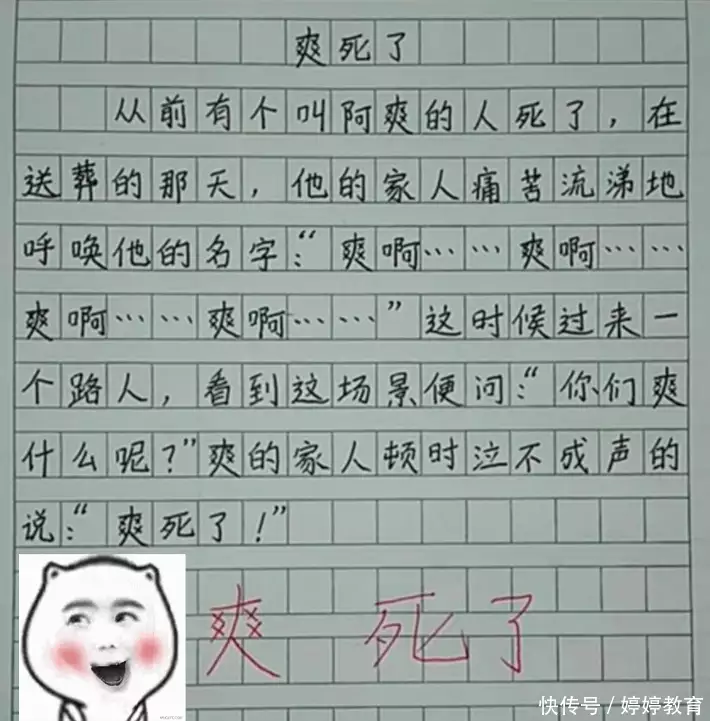 爽死了
从前有个叫阿爽的人死了,在
送葬的那天,他的家人痛苦流涕地
呼唤他的名字:“爽啊……爽啊……
爽啊……爽啊……”这时候过来一
个路人,看到这场景便问:“你们爽
什么呢?”爽的家人顿时泣不成声的
说:“爽死了!”
爽 死了
快传号/婷婷教育